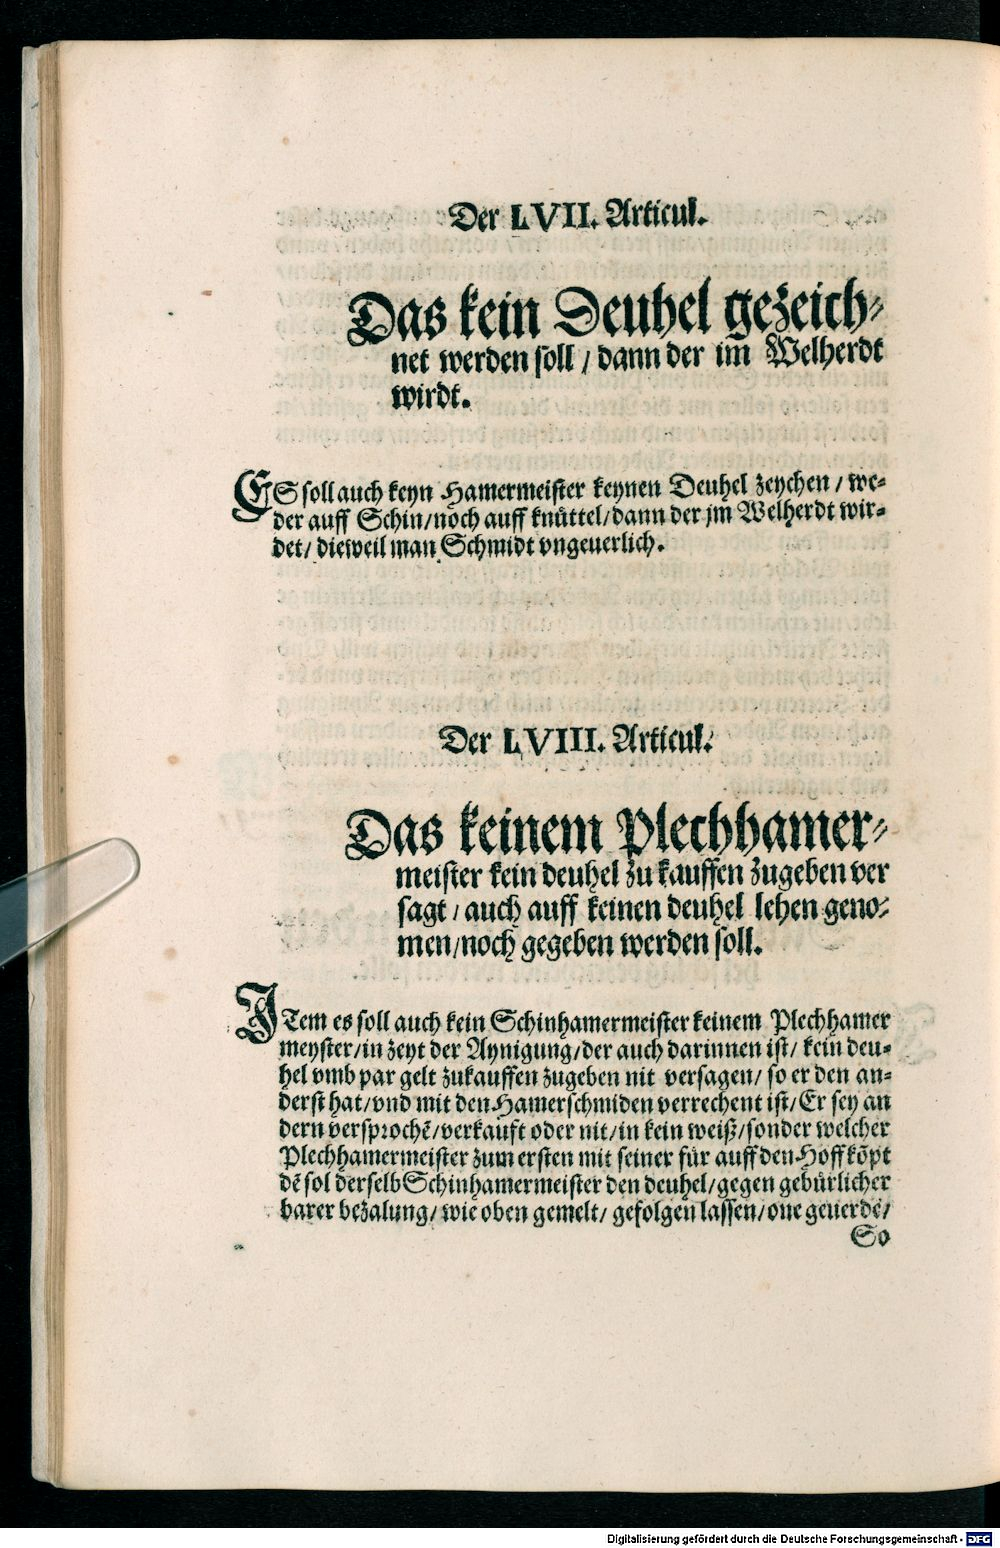 Der LVII. Articul.
Das kein Deuhel gezeich-
net werden soll / dann der im Welherdt
wirdt.
ES soll auch keyn Hamermeister keynen Deuhel zeychen / we-
der auff Schin / noch auff knüttel / dann der jm Welherdt wir-
det / dieweil man Schmidt vngeuerlich.
Der LVIII. Articul.
Das keinem Plechhamer-
meister kein deuhel zu kauffen zugeben ver
sagt / auch auff keinen deuhel lehen geno-
men / noch gegeben werden soll.
ITem es soll auch kein Schinhamermeister keinem Plechhamer
meyster / in zeyt der Aynigung / der auch darinnen ist / kein deu-
hel vmb par gelt zukauffen zugeben nit versagen / so er den an-
derst hat / vnd mit den Hamerschmiden verrechent ist / Er sey an
dern versprochē / verkauft oder nit / in kein weiß / sonder welcher
Plechhamermeister zum ersten mit seiner für auff den Hoff kōpt
dē sol derselb Schinhamermeister den deuhel / gegen gebürlicher
barer bezalung / wie oben gemelt / gefolgen lassen / one geuerdē /
So
Digitalisierung gefördert durch die Deutsche Forschungsgemeinschaft - DFG